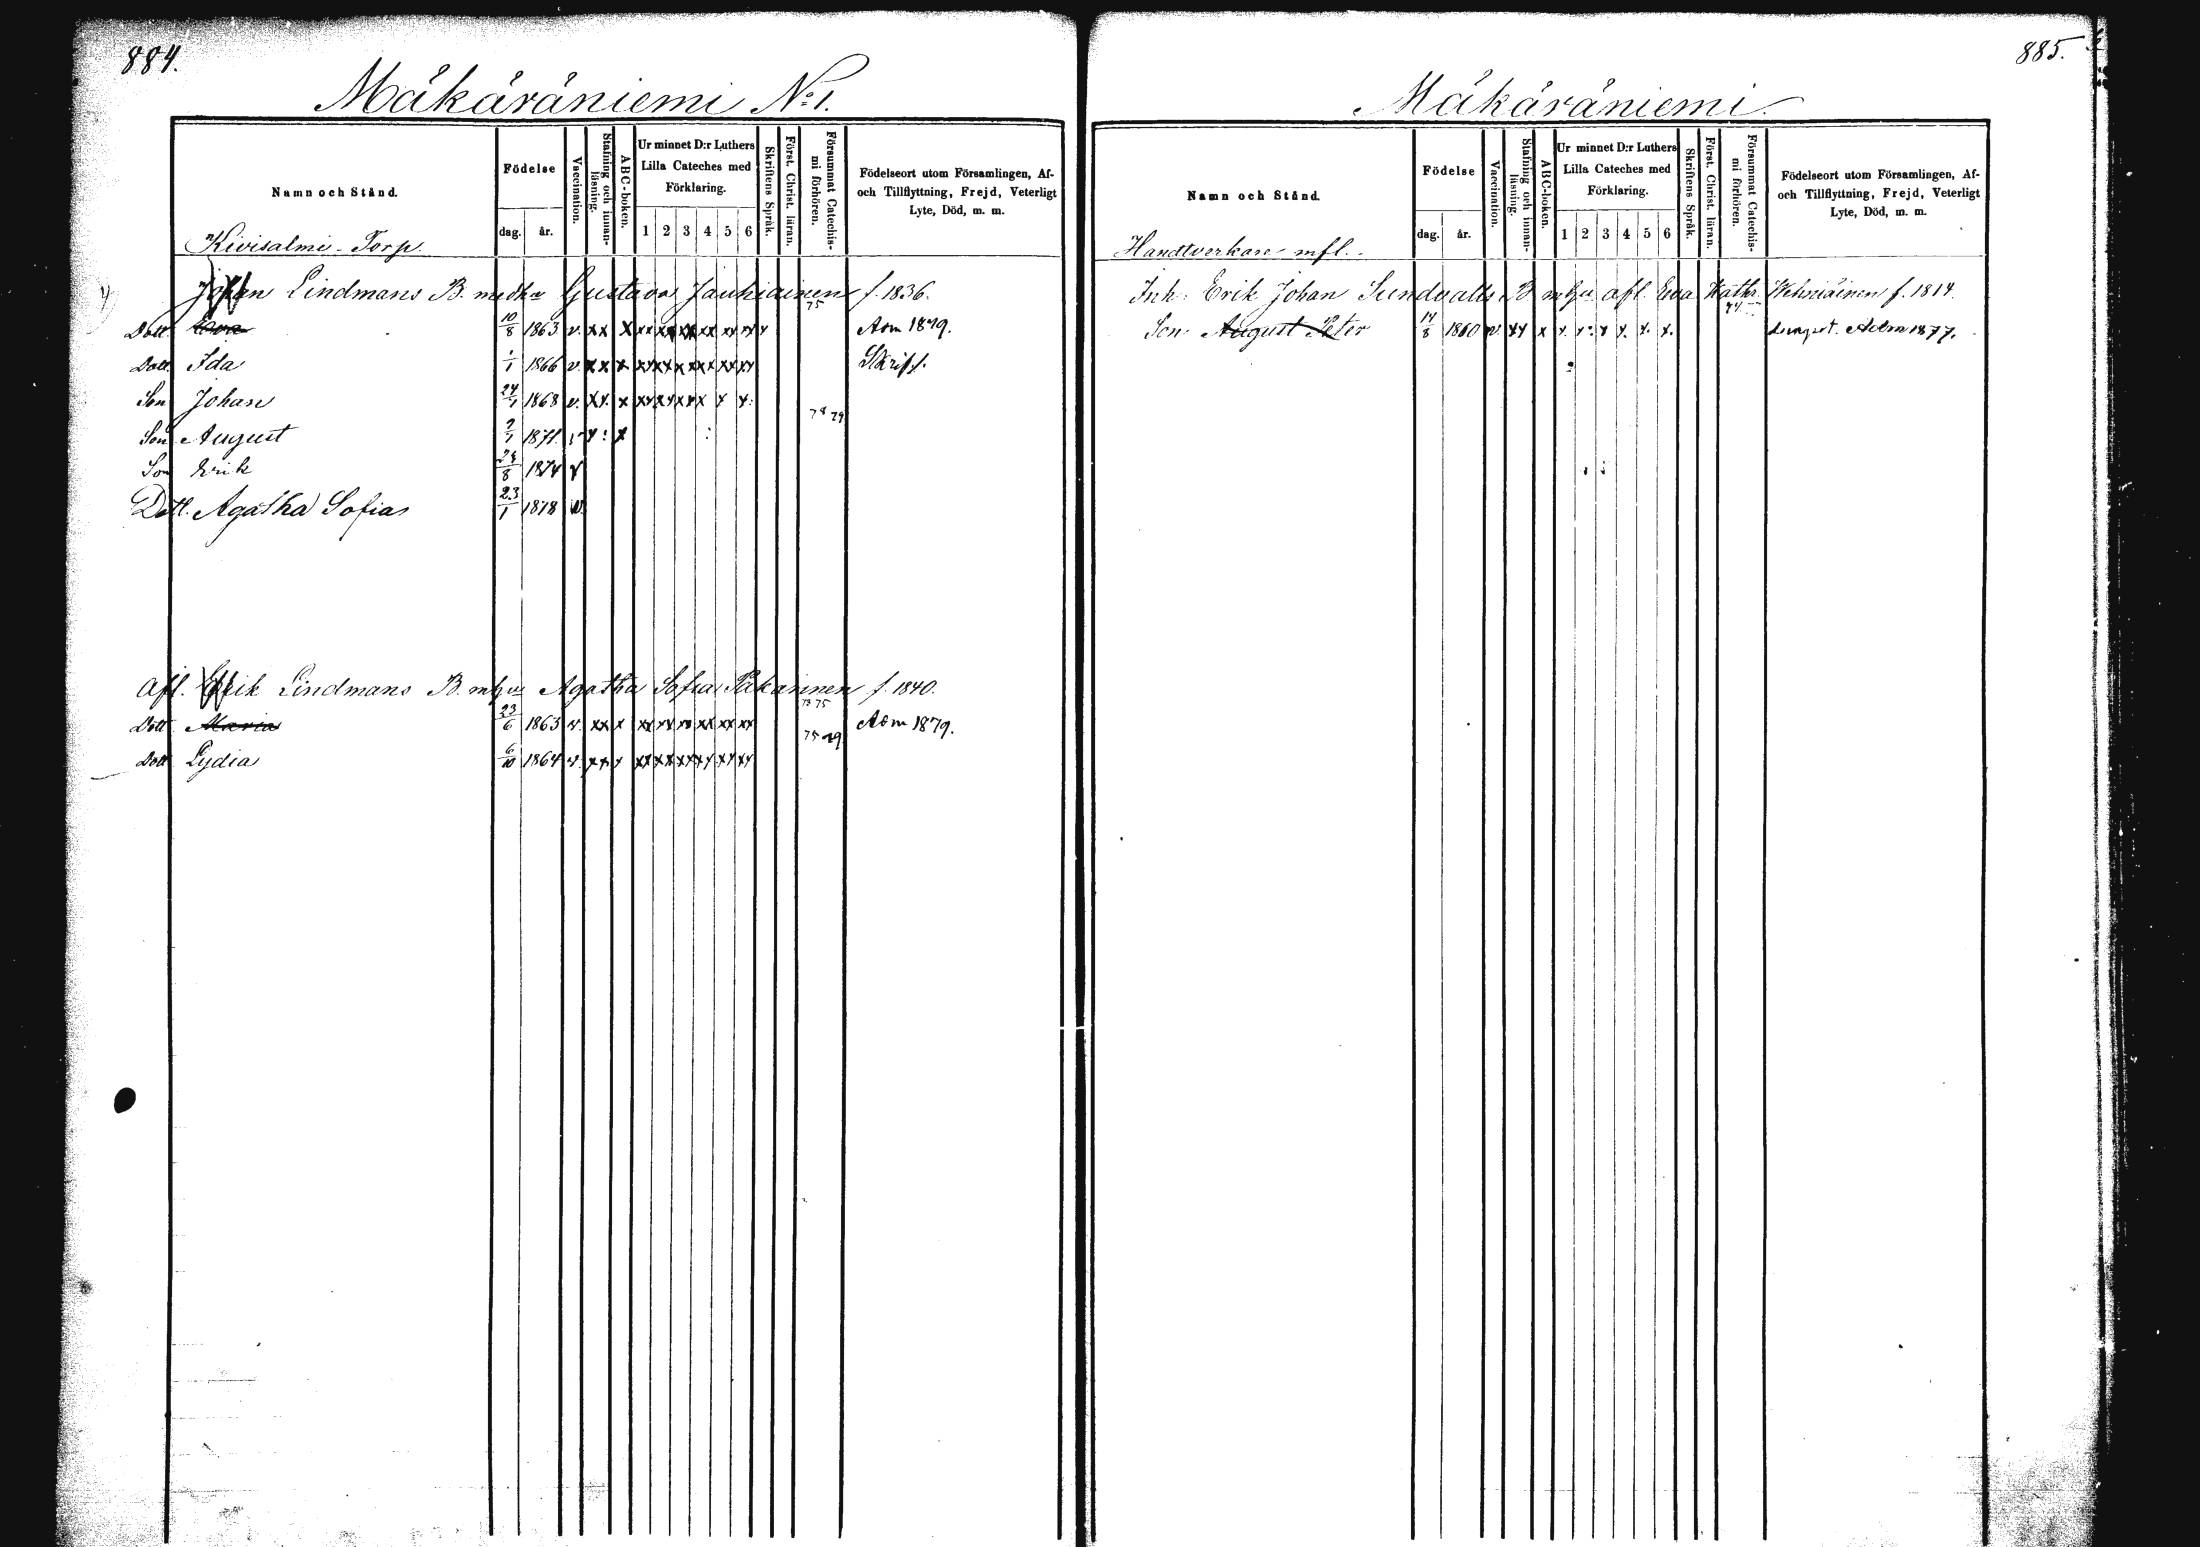 884.
Mäkäräniemi No 1.
Namn och Stånd.
Födelse
dag.
år.
Vaccination.
Stafning och innan-
läsning.
ABC-boken.
Ur minnet D:r Luthers
Lilla Cateches med
Förklaring.
1 2 3 4 5 6
Skriftens Språk.
Först. Christ. läran.
Försummat Catechis-
mi förhören.
Födelseort utom Församlingen, Af-
och Tillflyttning, Frejd, Veterligt
Lyte, Död, m. m.
Kivisalmi Torp
Johan Lindmans B. med hu Gustava Jauhiainen f. 1836.
75
Dott. Eva 10/8 1863 v. xx x xx xx xx xx xx xx x Adm 1879.
Dott. Ida 1/1 1866 v. x x x xx xx x x x x xx xx Skrift.
Son Johan 24/1 1868 v. xx. x xx xx xx x x x.
78 79
Son August 2/1 1871 v x: x
Son Erik 28/8 1874 v
Dott. Agatha Sofia 23/1 1878 v.
Afl. Erik Lindmans B. m hu Agatha Sofia Pakarinen f. 1840.
73 75
Dott Maria 23/6 1863 v. xx x xx xx xx xx xx xx Adm 1879.
75 79
Dott Lydia 6/10 1864 v. xx x xx xx xx xx xx xx
885.
Mäkäräniemi.
Namn och Stånd.
Födelse
dag.
år.
Vaccination.
Stafning och innan-
läsning.
ABC-boken.
Ur minnet D:r Luthers
Lilla Cateches med
Förklaring.
1 2 3 4 5 6
Skriftens Språk.
Först. Christ. läran.
Försummat Catechis-
mi förhören.
Födelseort utom Församlingen, Af-
och Tillflyttning, Frejd, Veterligt
Lyte, Död, m. m.
Handtverkare mfl.
Inh. Erik Johan Sundvalls B m hu afl. Eva Kathr. Wehniäinen f. 1814.
74
Son August Peter 14/8 1860 v xx x x. x. x x. x. x. Adm 1877.